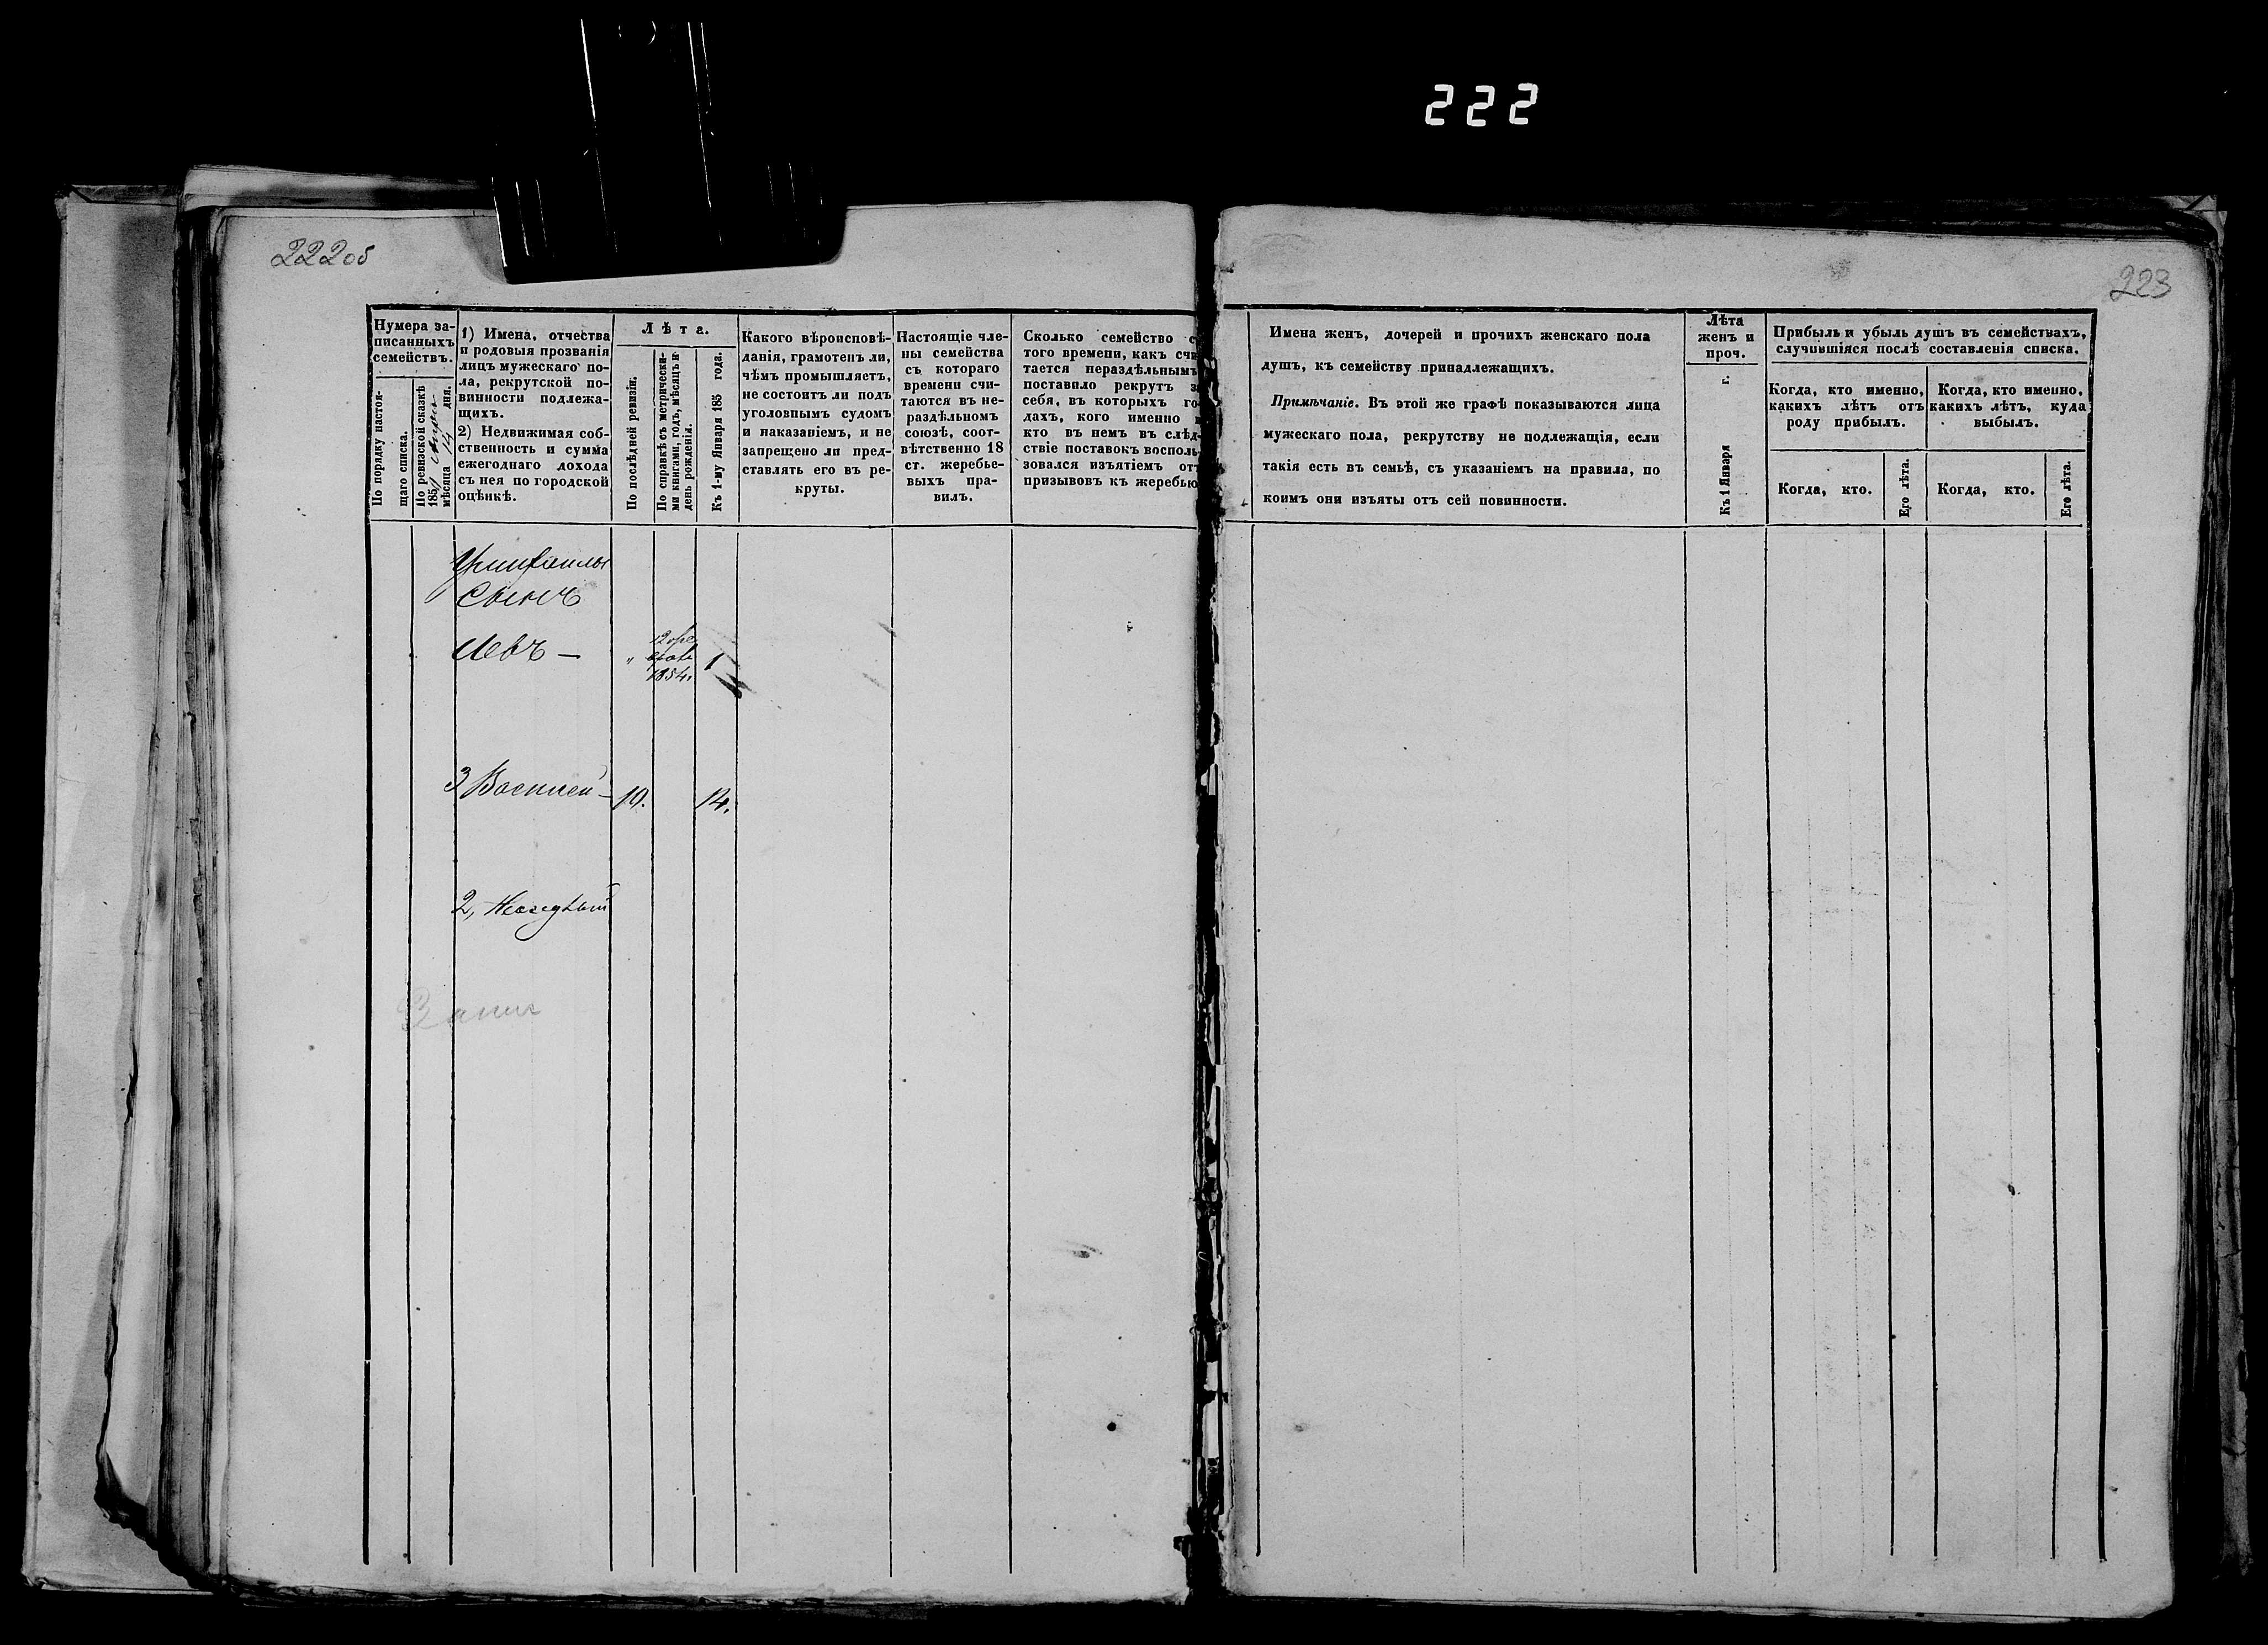 222
222 об
223
Нумера за-
писанныхъ
семействъ.
По порядку настоя-
щаго списка.
По ревизской сказкѣ
185
мѣсяца 14 дня.
1) Имена, отчества
и родовыя прозванія
лицъ мужескаго по-
ла, рекрутской по-
винности подлежа-
щихъ.
2) Недвижимая соб-
ственность и сумма
ежегоднаго дохода
съ нея по городской
оцѣнкѣ.
Лѣта.
По послѣдней ревизіи.
По справкѣ съ метрически-
ми книгами, годъ, мѣсяцъ и
день рожденія.
Къ 1-му Января 185 года.
Какого вѣроисповѣ-
данія, грамотенъ ли,
чѣмъ промышляетъ,
не состоитъ ли подъ
уголовнымъ судомъ
и наказаніемъ, и не
запрещено ли пред-
ставлять его въ ре-
круты.
Настоящіе чле-
ны семейства
съ котораго
времени счи-
таются въ не-
раздѣльномъ
союзѣ, соот-
вѣтственно 18
ст. жеребье-
выхъ пра-
вилъ.
Сколько семейство с
того времени, какъ счи
тается нераздѣльнымъ
поставило рекрутъ за
себя, въ которыхъ го-
дахъ, кого именно и
кто въ немъ въ слѣд-
ствіе поставокъ восполь-
зовался изъятіемъ отъ
призывовъ къ жеребью
Имена женъ, дочерей и прочихъ женскаго пола
душъ, къ семейству принадлежащихъ.
Примѣчаніе. Въ этой же графѣ показываются лица
мужескаго пола, рекрутству не подлежащія, если
такія есть въ семьѣ, съ указаніемъ на правила, по
коимъ они изъяты отъ сей повинности.
Лѣта
женъ и
проч.
Къ 1 Января г.
Прибыль и убыль душъ въ семействахъ,
случившіяся послѣ составленія списка.
Когда, кто именно,
какихъ лѣтъ отъ
роду прибылъ.
Когда, кто именно,
какихъ лѣтъ, куда
выбылъ.
Когда, кто.
Его лѣта.
Когда, кто.
Его лѣта.
Сынъ
Левъ — " 1854. 1
3 Василій — 10. 14.
2,